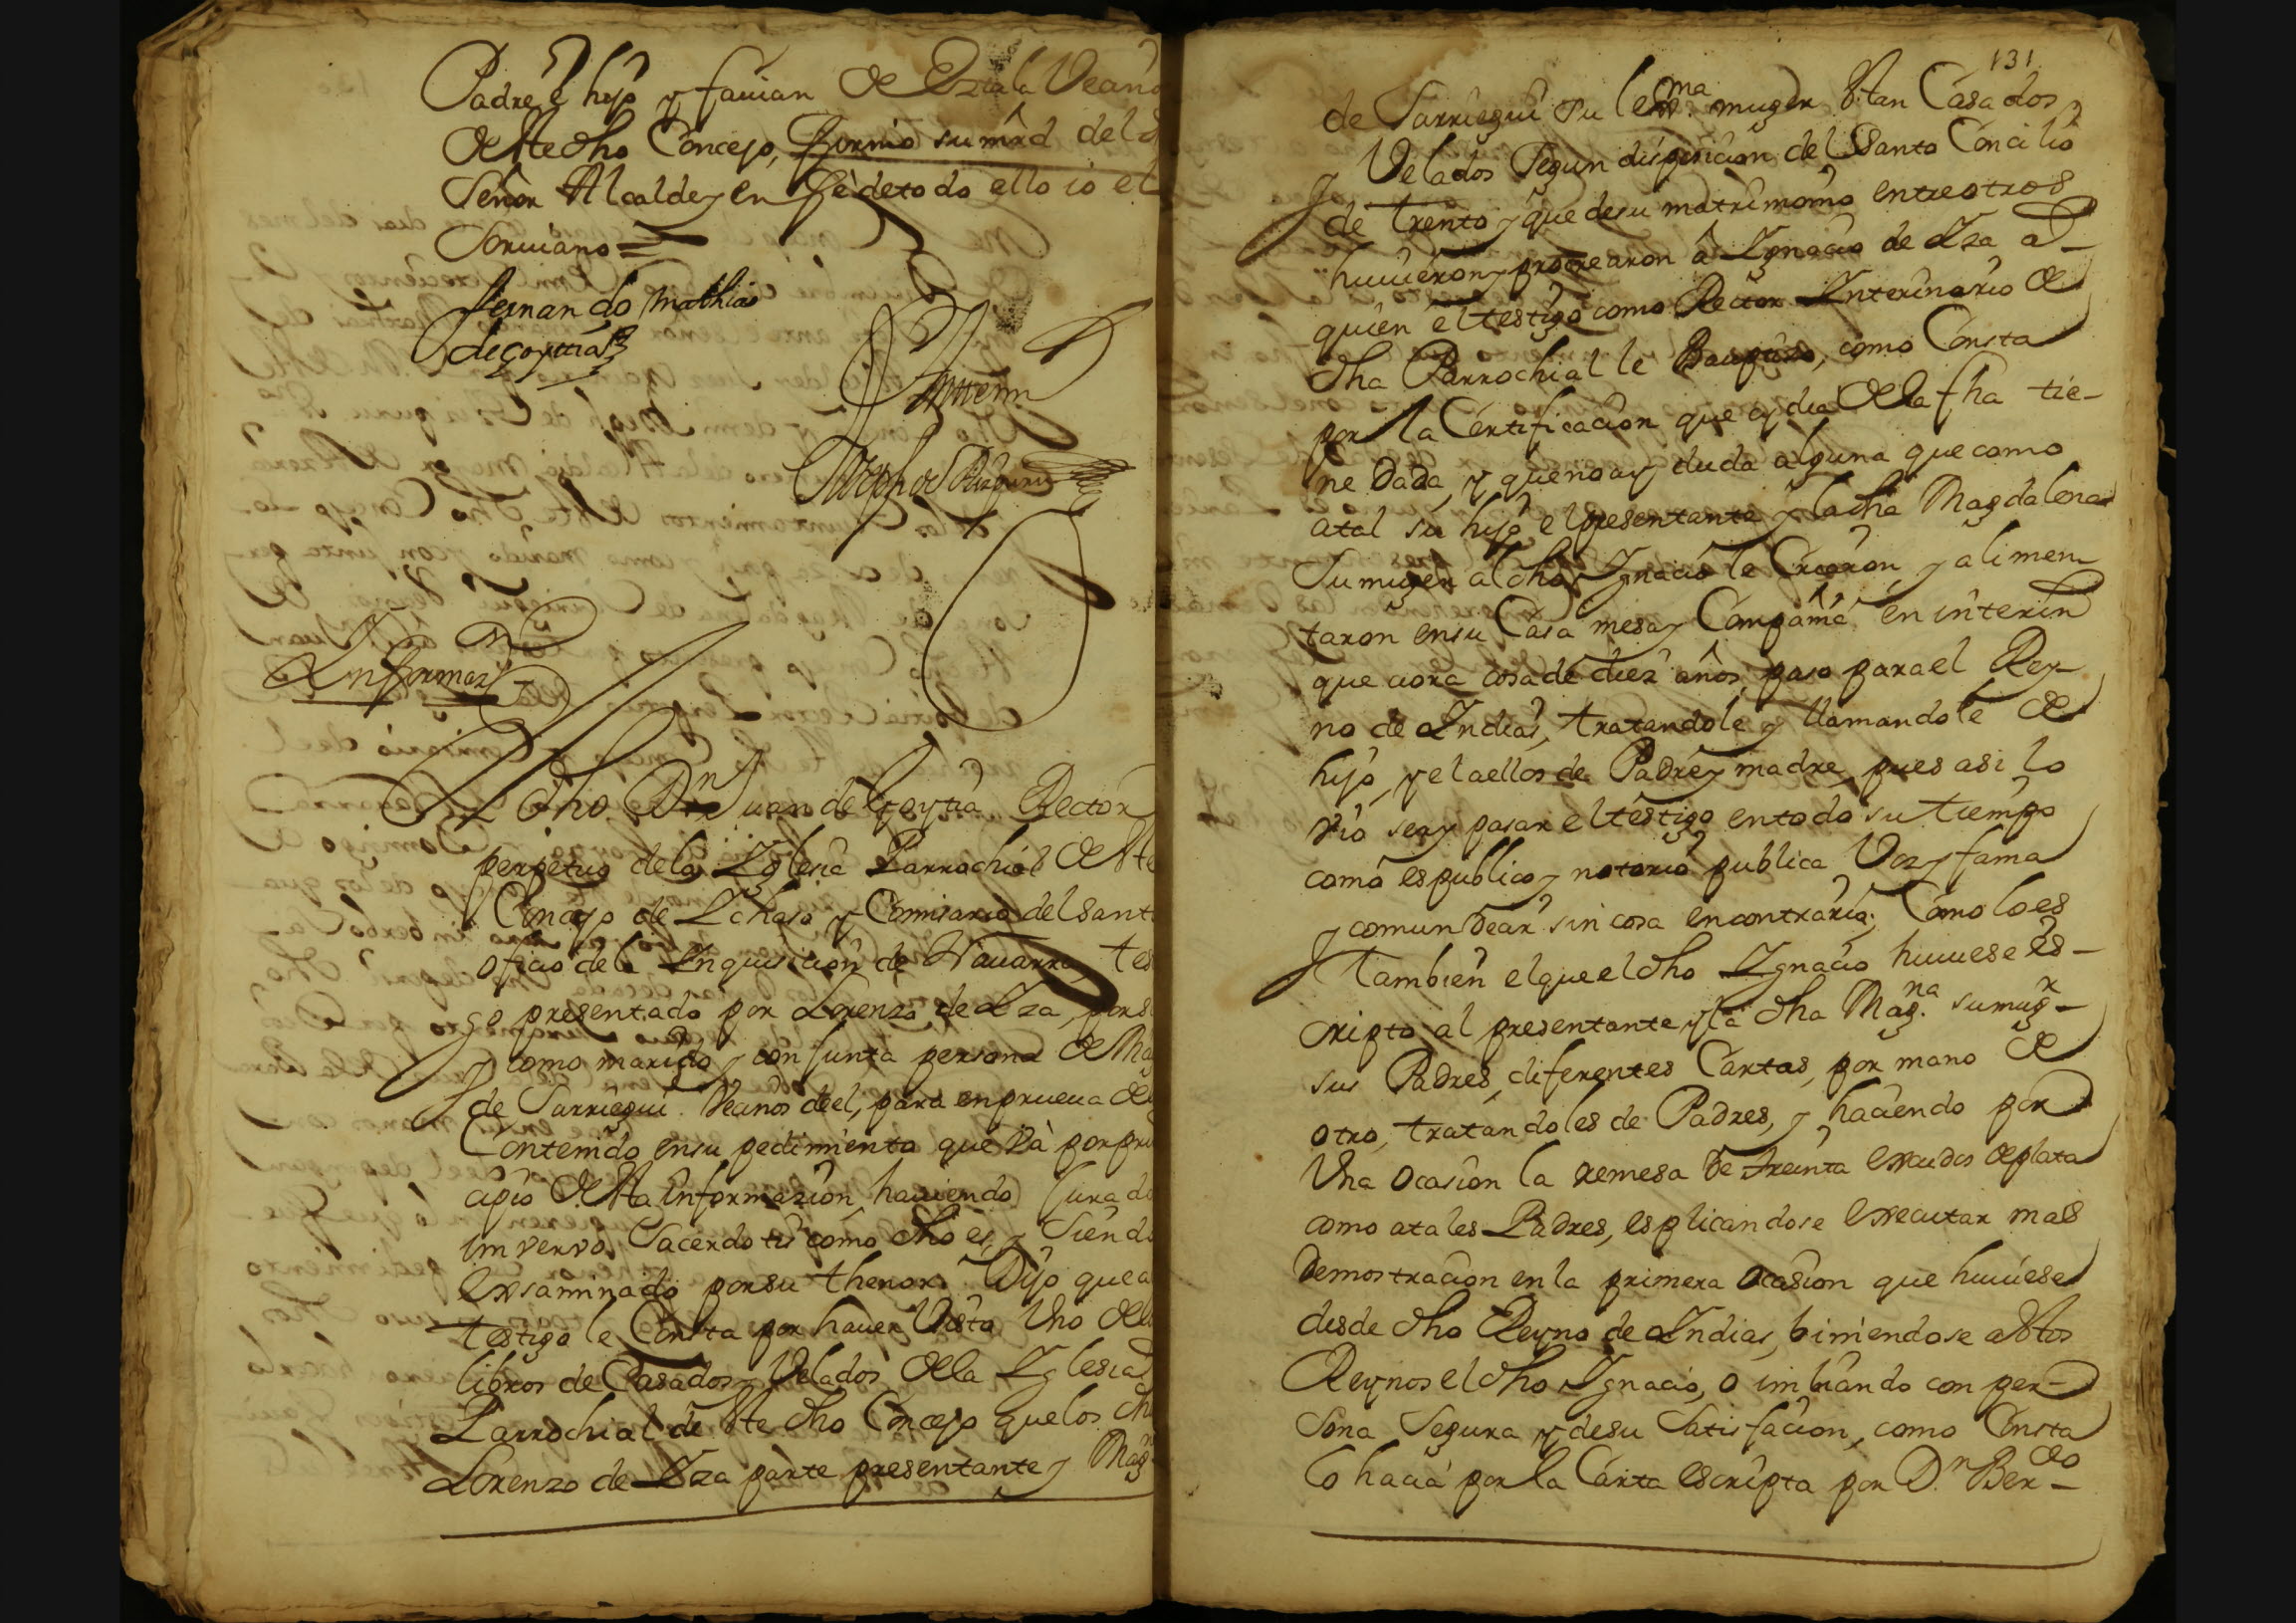 Padre é hijo y favian de Vean
deste dho Concejo, firmó su mrd del d
Señor Alcalde y en feé de todo ello io el
Scruiano =
fernando Mathias
de goytia
Antemi
Joseph de
Informazn
El dho Dn Juan de Goytia Rector
perpetuo dela Iglesia Parrochial deste
Concejo de Ichaso y Comisario del Sant
oficio dela Inquisición de Nauarra, tes
go presentado por Lorenzo de Iza, por si
y como marido y conjunta persona de Ma
de Sarriegui Veanos deel, para en prueua del
Contenido ensu pedimiento que vá por prin
cipio desta informazión, haviendo jurado
im vervo Sacerdotis como dho es, y Siendo
exsaminado por su thenor: Dijo que a
testigo le Consta por hauer Visto Vno del
libros de Casados y Velados dela Iglesia
Parrochial de este dho Concejo que los dh
Lorenzo de Iza parte presentante y Mag
131
de Sarriegui su lexma muger stan Casados
y Velados Segun disposicion del Santo Concilio
de trento y que desu matrimonio entre otros
huuieron y procrearon á Ignacio de Iza a
quien el testigo como Rector Interinario de
dha Parrochial le Baupizo, como Consta
por la Certificacion que oy dia dela fha tie-
ne dada, y que no ay duda alguna que como
atal su hijo el presentante y la dha Magdalena
Su muger al dho Ignacio le Criaron y alimen
taron ensu Casa mesa y Compañia en interin
que aora cosa de diez años, paso para el Rey-
no de Indias, tratandole y llamandole de
hijo, y el a ellos de Padre y madre, pues asi lo
vio ser y pasar el testigo entodo su tiempo
como es publico y notorio publica Voz y fama
y comun dezir sin cosa encontrario; Como lo es
tambien el que el dho Ignacio huuiese es-
cripto al presentante y la dha Mag.na su mugr
sus Padres, diferentes Cartas, por mano de
otro, tratandoles de Padres, y haciendo por
Vna ocasion la remesa de treinta escudos de plata
como atales Padres, esplicandose executar mas
demostracion en la primera ocasion que huuiese
desde dho Reyno de Indias, biniendose a estos
Reynos el dho Ignacio, o imbiando con per-
sona Segura y desu Satisfacion, como Consta
lo hacia por la Carta escripta por D.n Ber.do